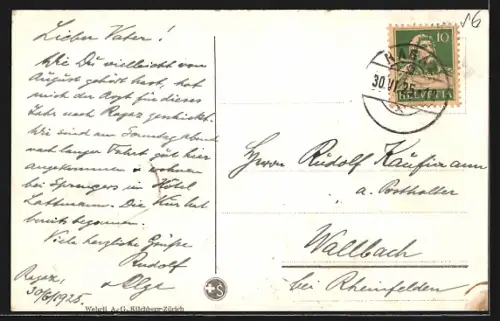 Lieber Vater!
Wie Du vielleicht von
August gehört hast, hat
mich der Arzt für dieses
Jahr nach Ragaz geschickt.
Wir sind am Sonntag Abend
nach langer Fahrt gut hier
angekommen & wohnen
bei Sprengers im Hôtel
Lattmann. Die Kur hat
bereits begonnen.
Viele herzliche Grüße
Rudolf
& Olga
Ragaz,
30/6/1925.
Wehrli A.-G., Kilchberg-Zürich
S
56
10
HELVETIA
RAGAZ
30.VI.25
Herrn Rudolf Kaufmann
a. Posthalter
Wallbach
bei Rheinfelden